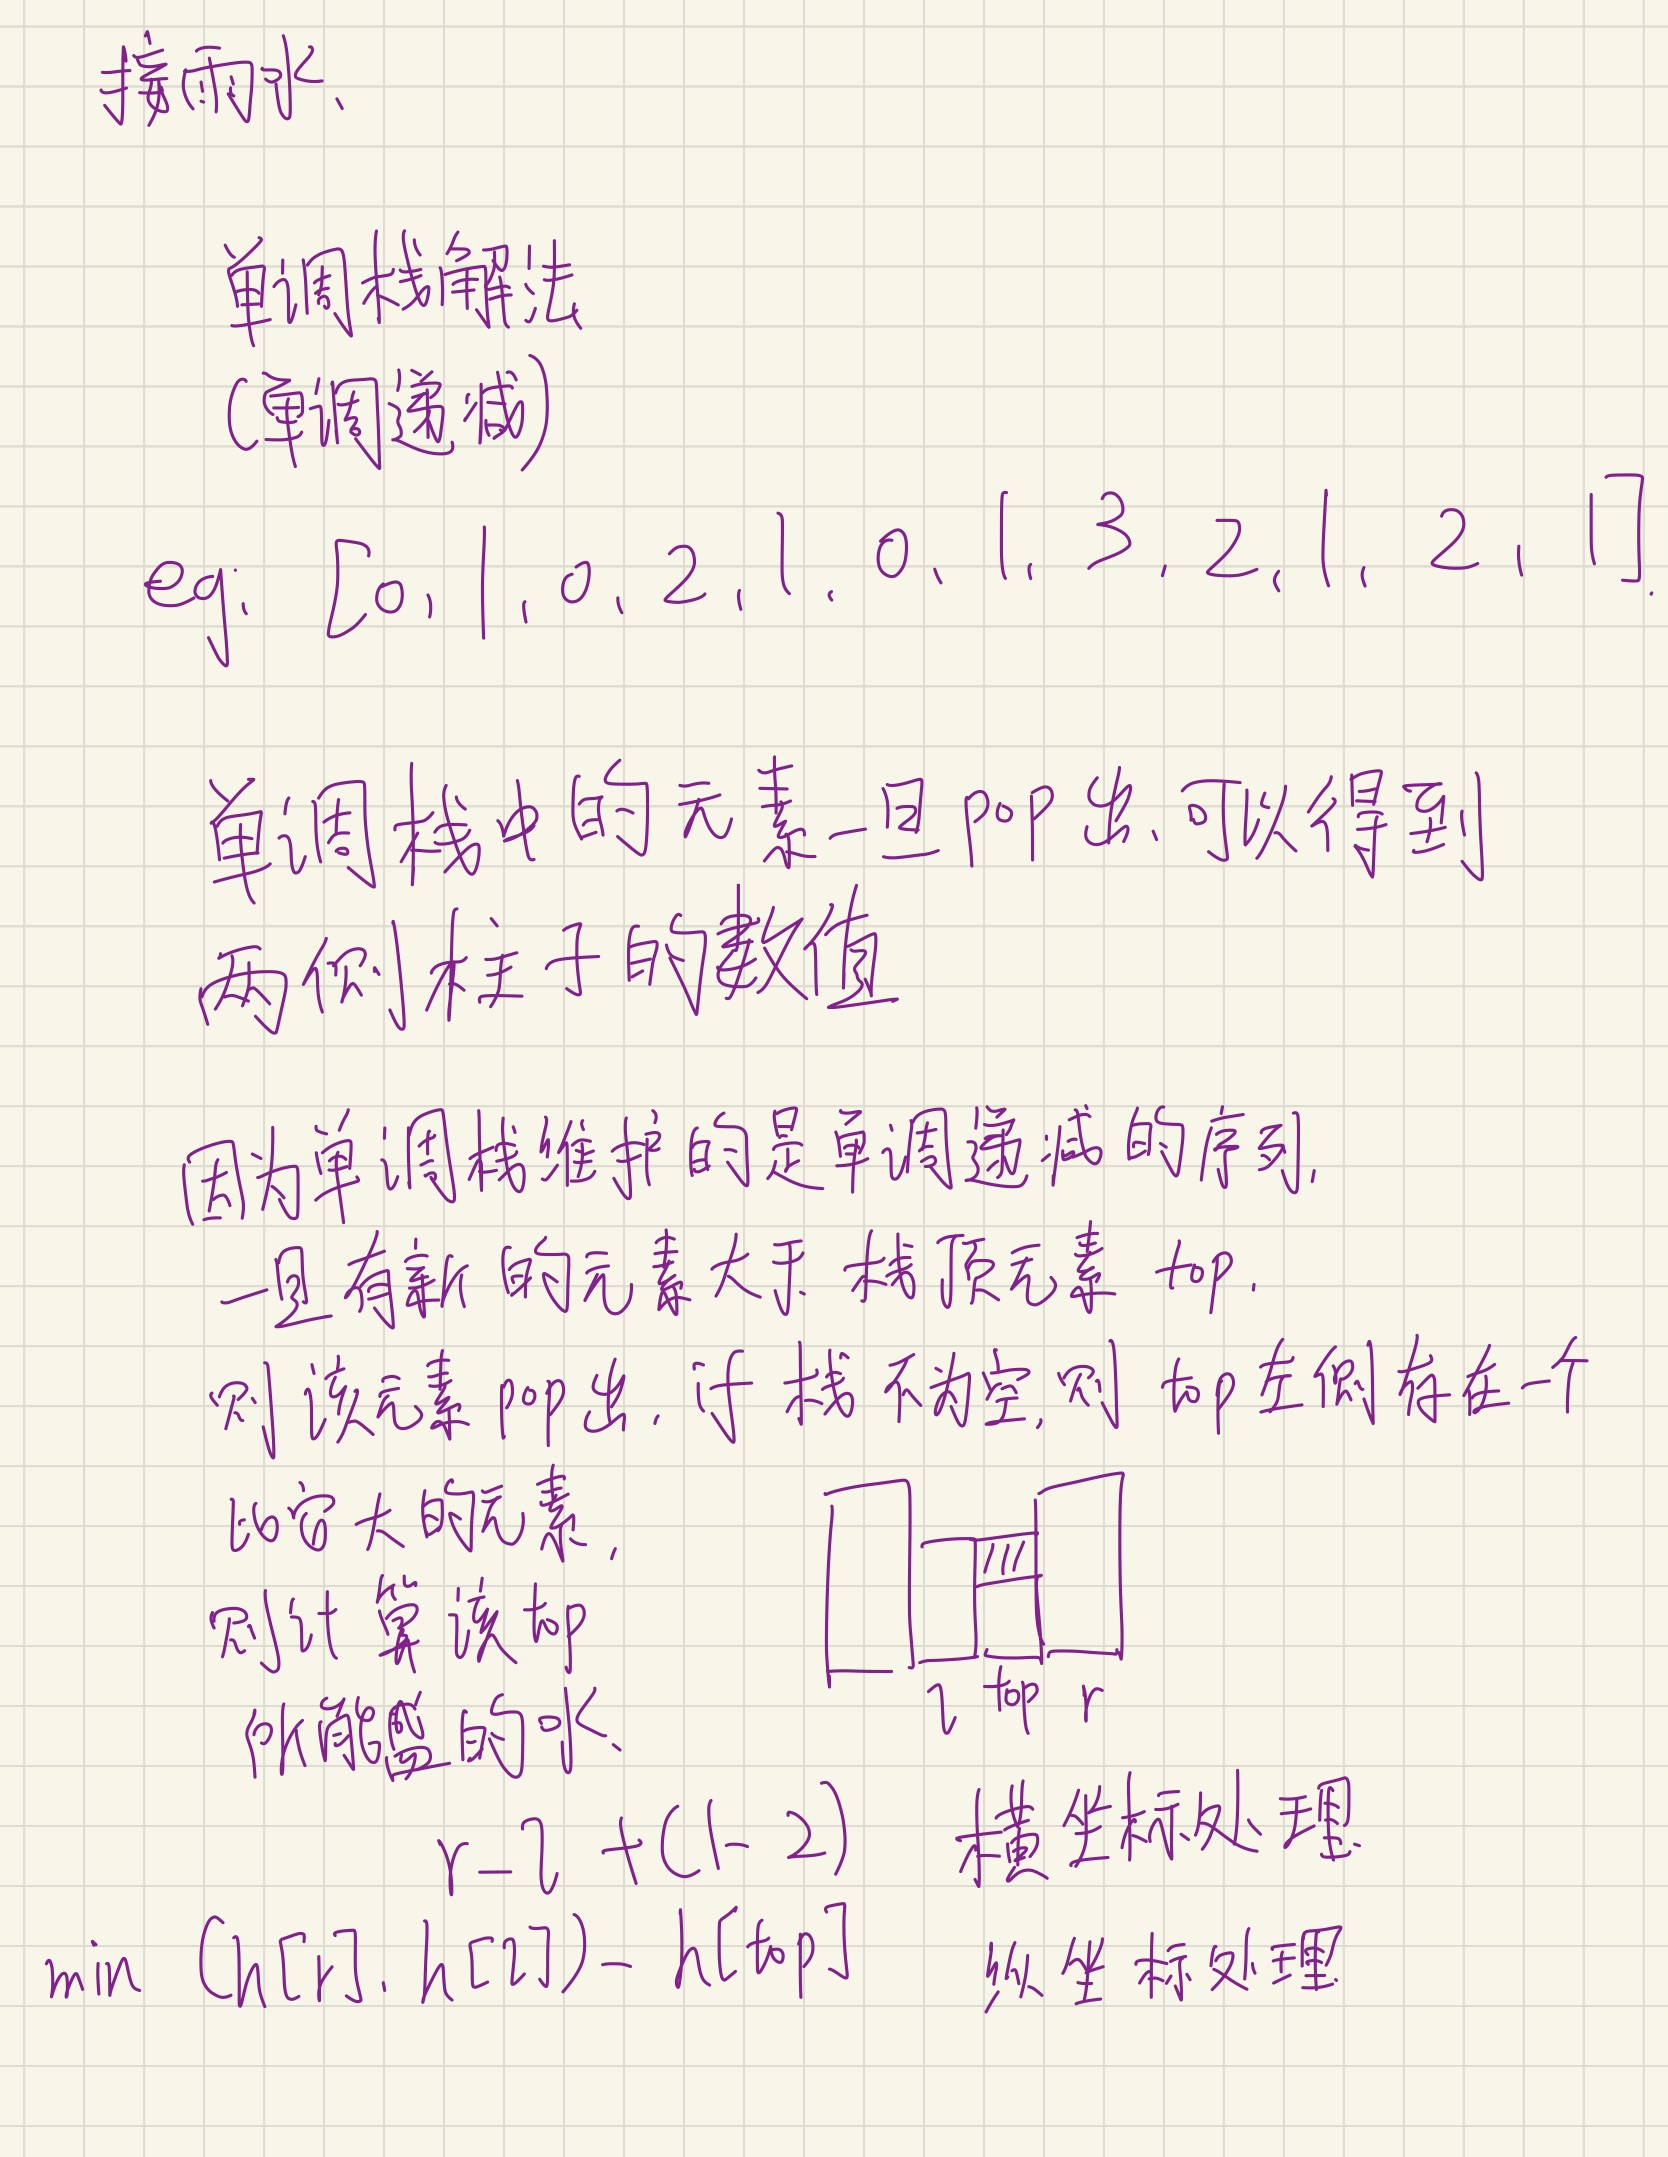 接雨水、
单调栈解法
(单调递减)
eg. [0, 1, 0, 2, 1, 0, 1, 3, 2, 1, 2, 1].
单调栈中的元素一旦pop出、可以得到
两侧柱子的数值
因为单调栈维护的是单调递减的序列,
一旦有新的元素大于栈顶元素 top.
则该元素pop出. if 栈不为空, 则 top左侧存在一个
比它大的元素,
则计算该top
所能盛的水、
l top r
r-l +(1-2) 横坐标处理.
min (h[r], h[l])- h[top] 纵坐标处理.